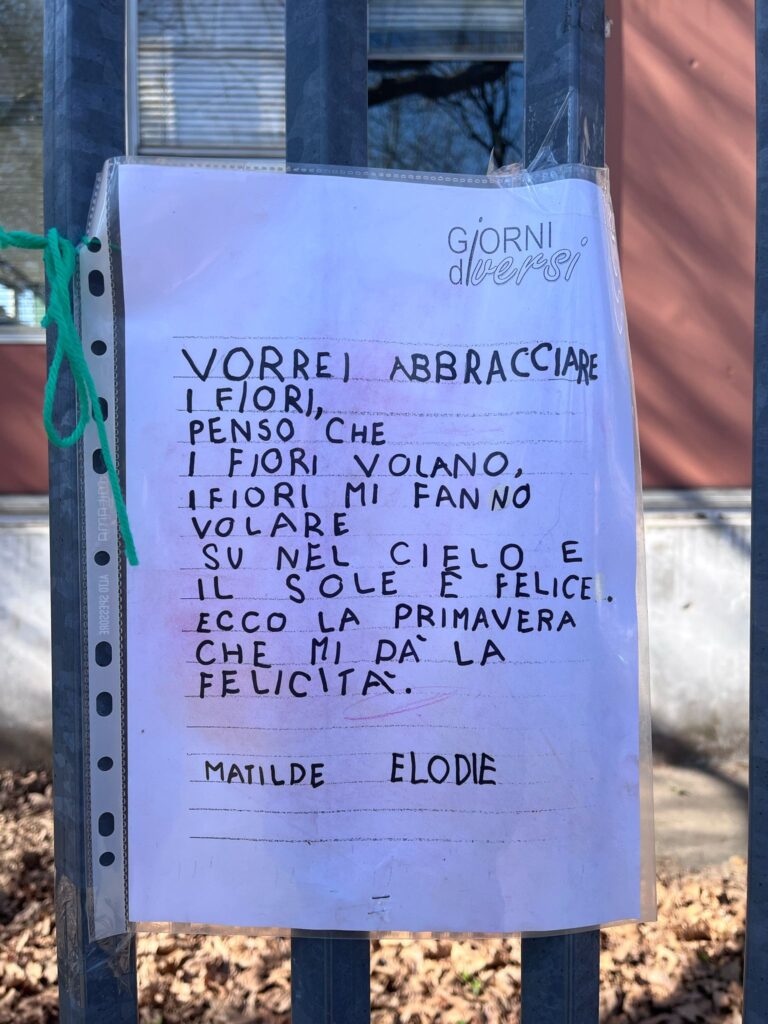 GiORNI
diversi
VORREI ABBRACCIARE
I FIORI,
PENSO CHE
I FIORI VOLANO,
I FIORI MI FANNO
VOLARE
SU NEL CIELO E
IL SOLE È FELICE.
ECCO LA PRIMAVERA
CHE MI DÀ LA
FELICITÀ.
MATILDE ELODIE
ALTO SPESSORE